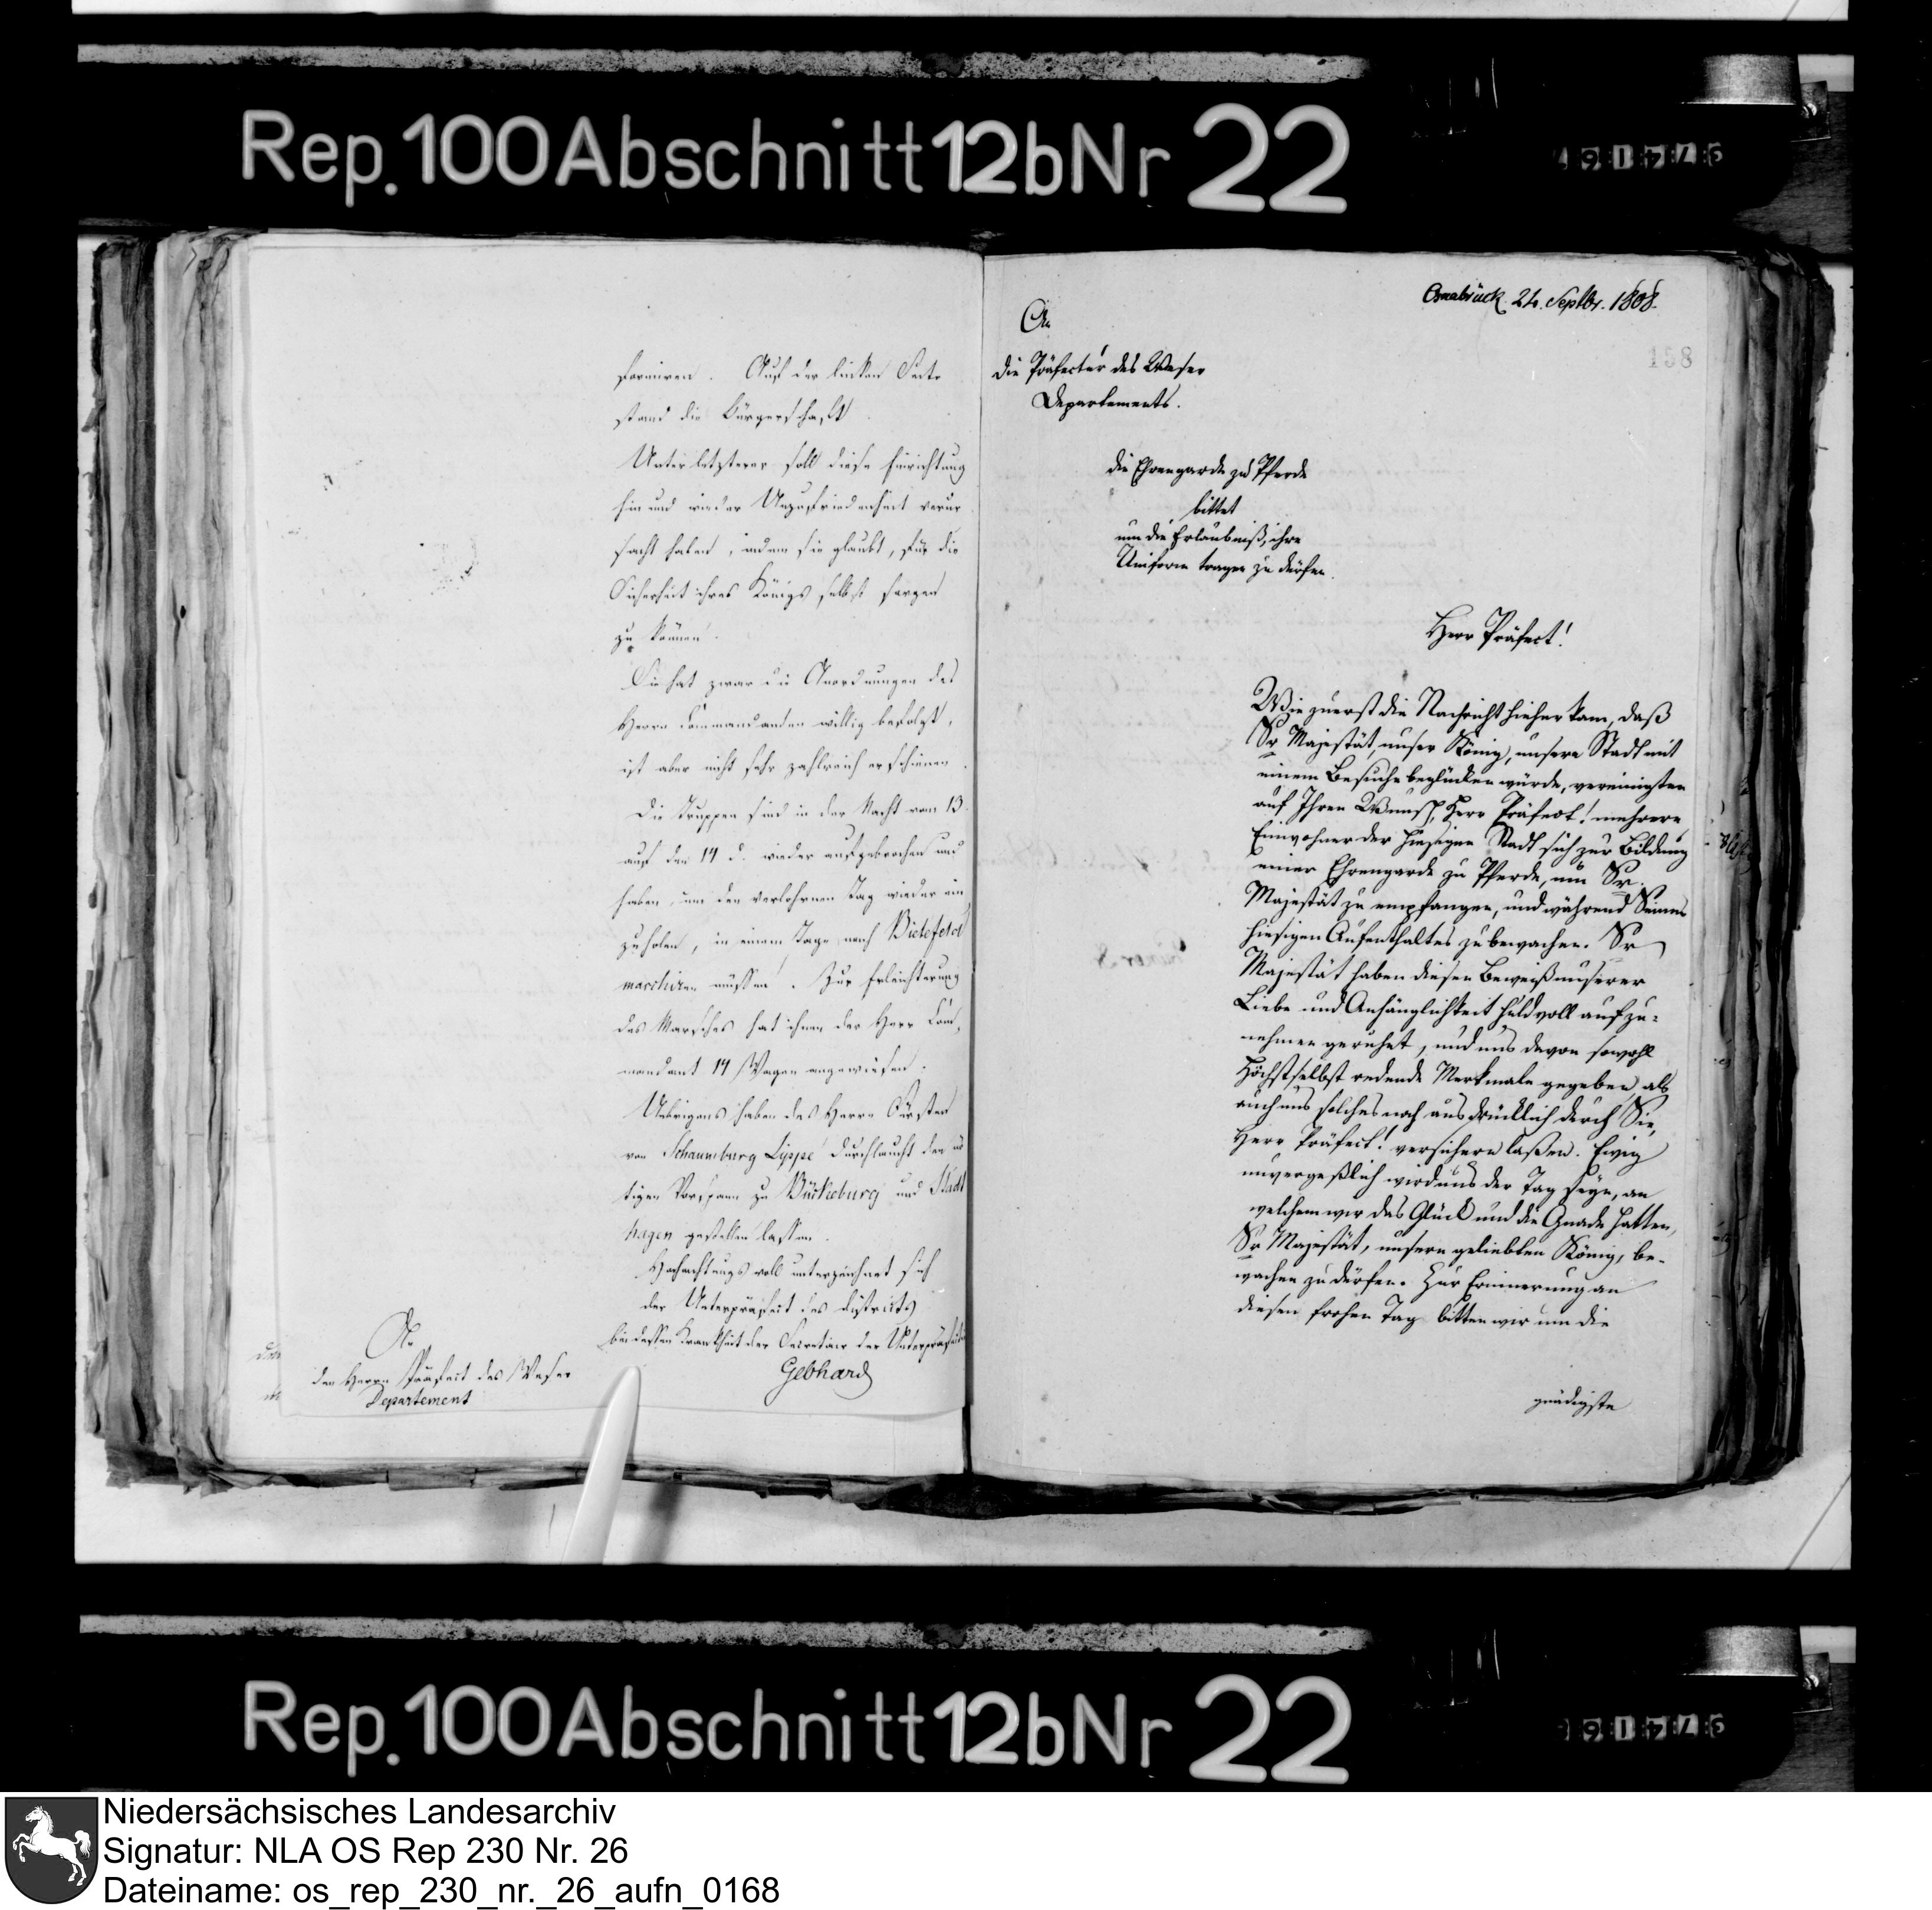 Rep.100Abschnitt12bNr 22
formiren. Auf der linken Seite
stand die Bürgerschaft.
Unter letzterer soll diese Einrichtung
hin und wieder Unzufriedenheit verur
sacht haben, indem sie glaubt, für die
Sicherheit ihres Königs selbst sorgen
zu können.
Sie hat zwar die Anordnungen des
Herrn Commandanten willig befolgt,
ist aber nicht sehr zahlreich erschienen.
Die Truppen sind in der Nacht vom 13.
auf den 14 d. wieder aufgebrochen und
haben, um den verlohrnen Tag wieder ein
zuholen, in einem Tage nach Bielefeld
marchiren müssen. Zur Erleichterung
des Marsches hat ihnen der Herr Com,
mandant 14 Wagen angewiesen.
Uebrigens haben des Herrn Fürsten
von Schaumburg Lippe Durchlaucht den nö
tigen Vorspann zu Bückeburg und Stadt
hagen gestellen lassen.
Hochachtungsvoll unterzeichnet sich
der Unterpräfect des Districts
bei dessen Krankheit der Secretair der Unterpräfectur
Gebhard
An
den Herrn Präfect des Weser
Departement
Osnabrück 24. Septbr. 1808.
158
An
die Präfectur des Weser
Departements.
die Ehrengarde zu Pferde
bittet
um die Erlaubniß, ihre
Uniform tragen zu dürfen.
Herr Präfect!
Wie zuerst die Nachricht hieher kam, daß
Sr Majestät, unser König, unsere Stadt mit
einem Besuche beglücken würde, vereinigten
auf Ihren Wunsch, Herr Präfect! mehrere
Einwohner der hiesigen Stadt sich zur Bildung
einer Ehrengarde zu Pferde, um Sr.
Majestät zu empfangen, und während Seines
hiesigen Aufenthaltes zu bewachen. Sr
Majestät haben diesen Beweiß unserer
Liebe und Anhänglichkeit huldvoll aufzu-
nehmen geruhet, und uns davon sowohl
Höchstselbst redende Merkmale gegeben, als
auch uns solches noch ausdrücklich durch Sie,
Herr Präfect! versichern laßen. Ewig
unvergeßlich wird uns der Tag seyn, an
welchem wir das Glück und die Gnade hatten,
Sr Majestät, unsern geliebten König, be-
wachen zu dürfen. Zur Erinnerung an
diesen frohen Tag bitten wir um die
gnädigste
Rep.100Abschnitt12bNr 22
Niedersächsisches Landesarchiv
Signatur: NLA OS Rep 230 Nr. 26
Dateiname: os_rep_230_nr._26_aufn_0168